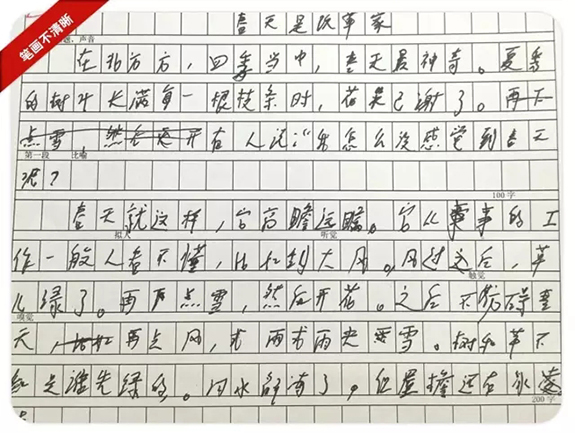 笔画不清晰
春天是改革家
题，声音
在北方，四季当中，春天最神奇。夏季
的树叶长满每一根枝条时，花果已谢了。再下
点雪 然后开 有人说：我怎么没感觉到春天
第一段 比喻
呢？
100字
春天就这样，它高瞻远瞩。它从事的工
拟 听觉
作一般人看不懂，比如刮大风。风过之后，草
触觉
儿绿了。再下点雪，然后开花。之后不妨碍春
嗅觉
天，再点风，或雨或雨夹雪。树和草不
知是谁先绿的。河水解冻了，但屋檐还有冰凌
200字